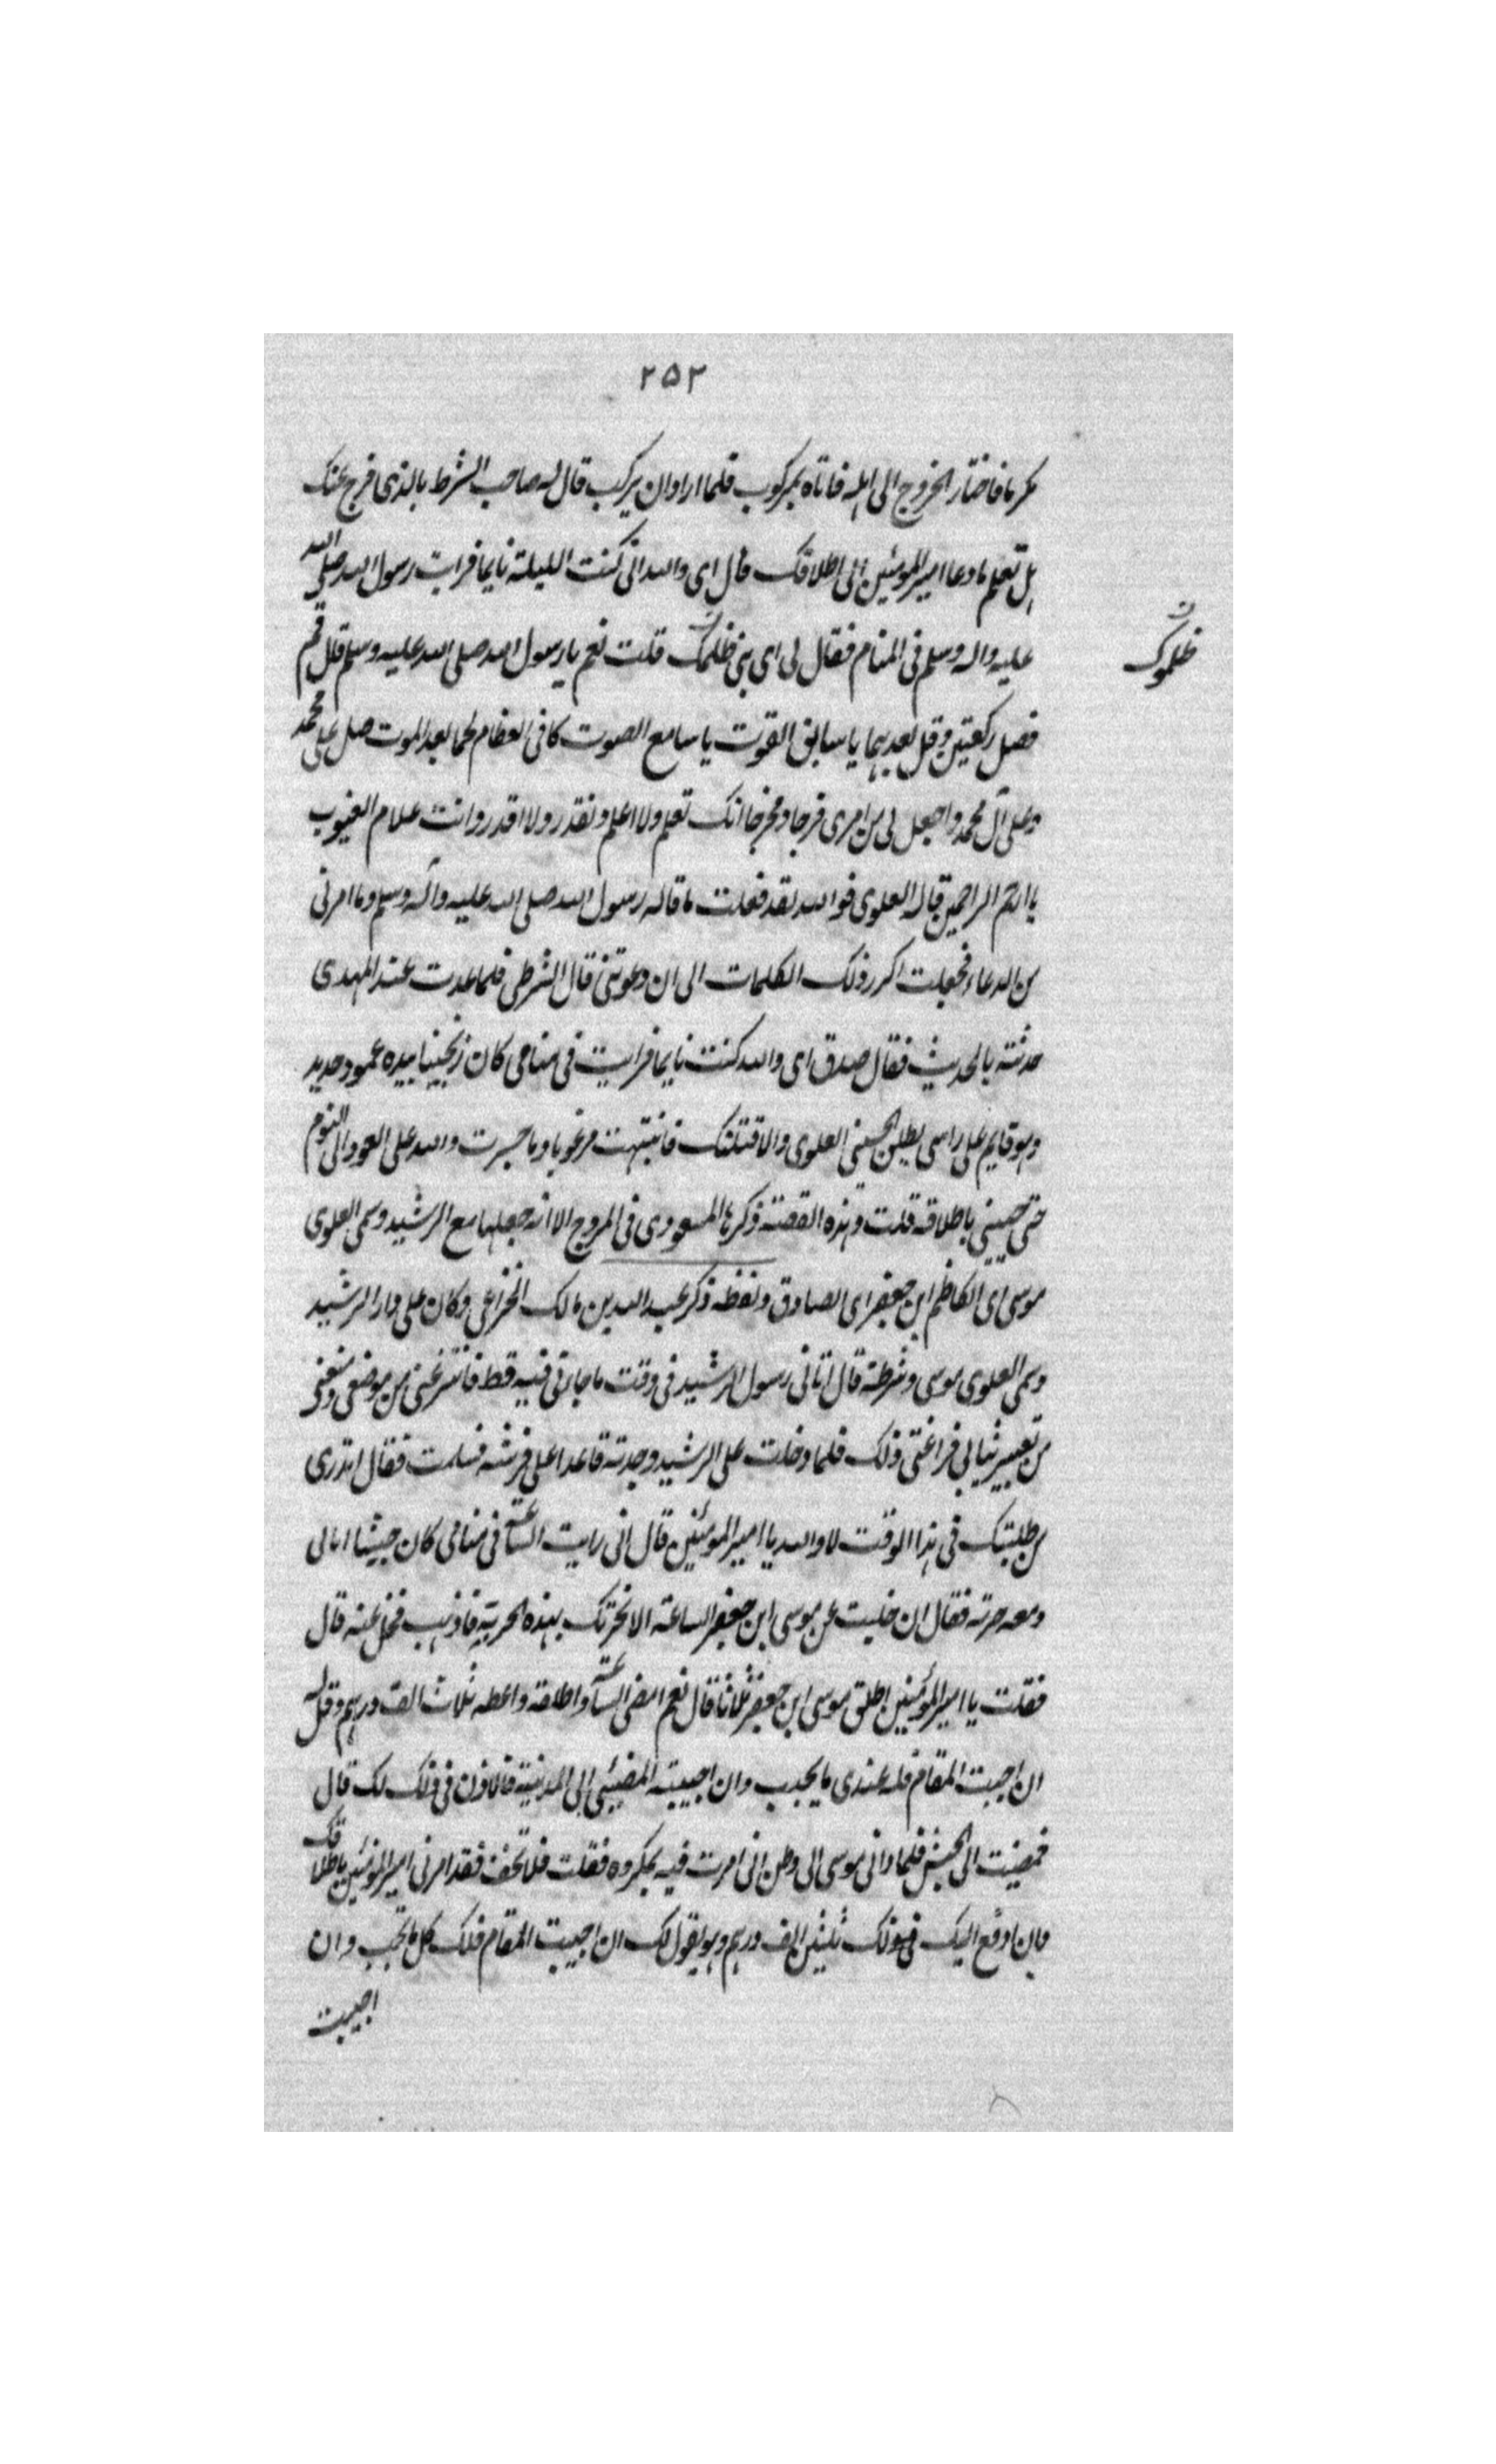 ٢٥٢
مكرما فاختار الخروج الى اهله فاتاه بمركوب فلما اراد ان يركب قال له صاحب الشرط بالذى فرج عنك
هل تعلم ما دعا امير المومنين الى اطلاقك قال اى والله انى كنت الليلة نايما فرايت رسول الله صلى الله
عليه واله وسلم فى المنام فقال لى اى بنى ظلمك قلت نعم يا رسول الله صلى الله عليه وسلم قال قم
ظلموك
فصل ركعتين وقل بعدهما يا سابق الفوت يا سامع الصوت كاسى العظام لحما بعد الموت صل على محمد
وعلى آل محمد واجعل لى من امرى فرجا ومخرجا انك تعلم ولا اعلم وتقدر ولا اقدر وانت علام الغيوب
يا ارحم الراحمين قال العلوى فوالله لقد فعلت ما قاله رسول الله صلى الله عليه وآله وسلم وما امرنى
من الدعاء فجعلت اكرر ذلك الكلمات الى ان دعوتنى قال الشرطى فلما عدت عند المهدى
حدثته بالحديث فقال صدق اى والله كنت نايما فرايت فى منامى كان زنجينا بيده عمود حديد
وهو قايم على راسى يطلق الحسينى العلوى والا قتلتك فانتبهت مرغوبا وما جسرت والله على العود الى النوم
حتى جيتنى باطلاقه قلت وهذه القصة ذكرها المسعودى فى المروج الا انه جعلها مع الرشيد وسمى العلوى
موسى اى الكاظم ابن جعفر اى الصادق ولفظه ذكر عبد الله بن مالك الخزاعى وكان على دار الرشيد
وسمى العلوى موسى وشرطة قال اتانى رسول الرشيد فى وقت ما جاءنى فيه قط فانتزعنى من موضعى ومنعنى
من تغيير ثيابى فراعنى ذلك فلما دخلت على الرشيد وجدته قاعدا على فرشه فسلمت فقال اتدرى
من طلبتك فى هذا الوقت لا والله يا امير المومنين قال انى رايت الساعة فى منامى كان حبيشا اتانى
ومعه حربة فقال ان خليت عن موسى ابن جعفر الساعة الا نحرتك بهذه الحربة فاذهب فخل عنه قال
فقلت يا امير المؤمنين اطلق موسى ابن جعفر ثلاثا قال نعم امض الساعة واطلقه واعطه ثلاث الف درهم وقل له
ان احببت المقام فله عندى ما يحب وان احببت المضيى الى المدينة فالاذن فى ذلك لك قال
فمضيت الى الحبس فلما رانى موسى الى وظن انى امرت فيه بمكروه فقلت فلا تخف فقد امرنى امير المؤمنين باطلاقك
وبان ادفع اليك ثلثين الف درهم وهو يقول لك ان احببت المقام فلك كل ما تحب وان
احببت